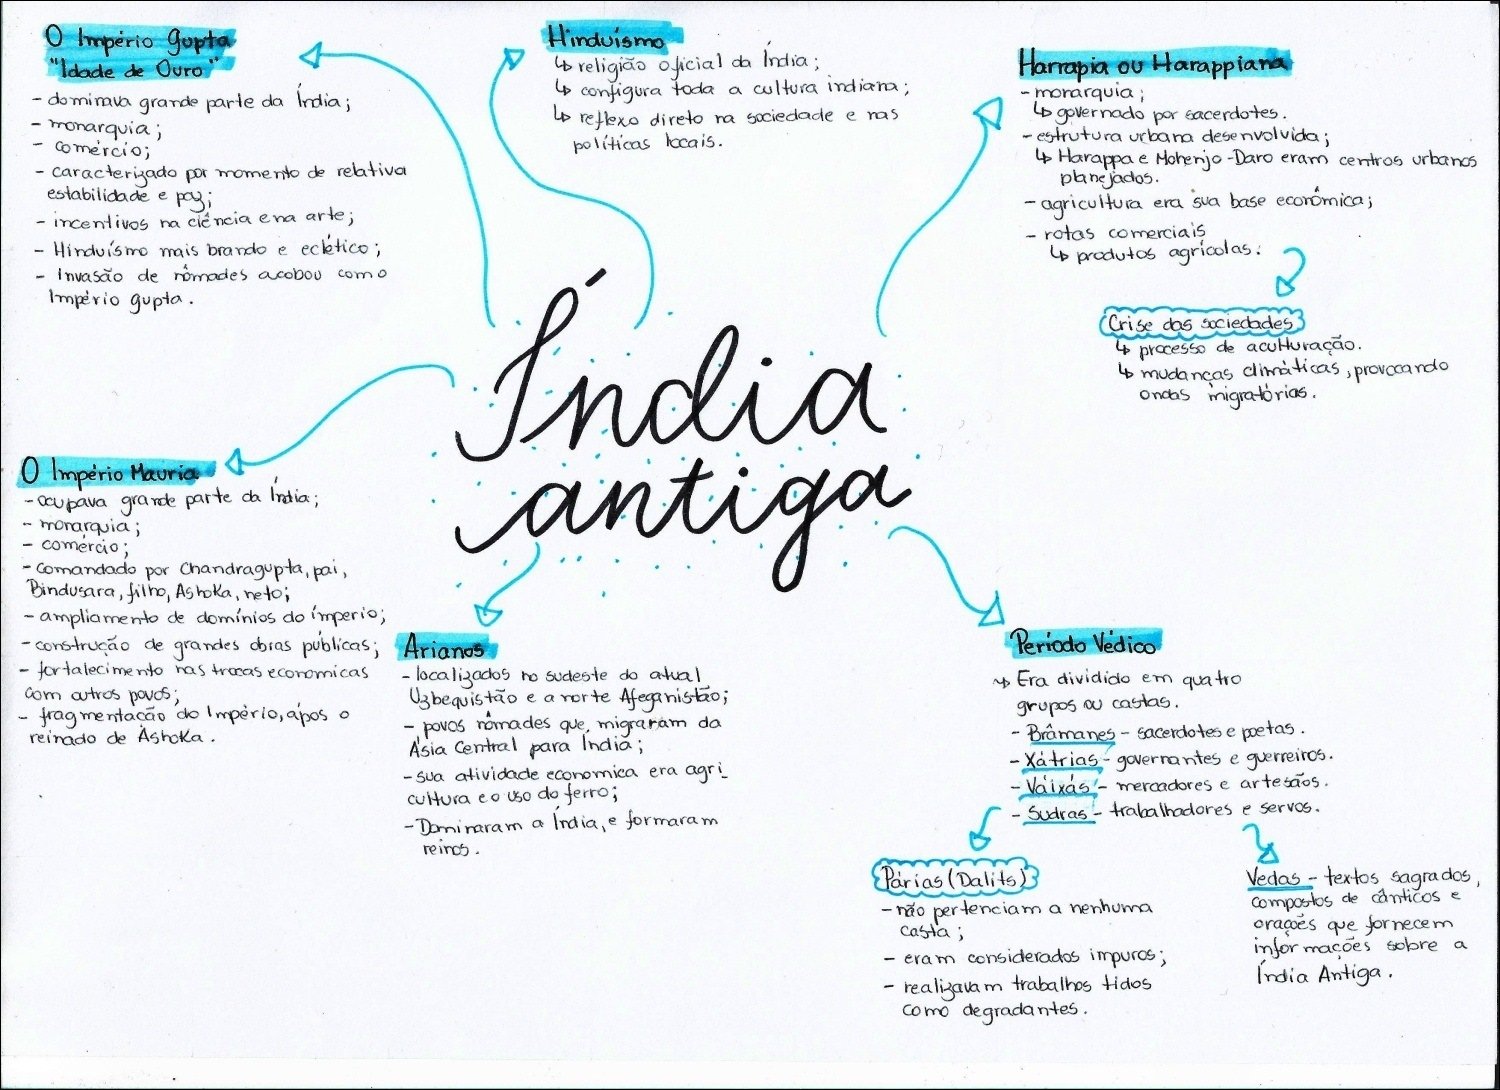 O Império Gupta
"Idade de Ouro"
- dominava grande parte da Índia;
- monarquia;
- comércio;
- caracterizado por momento de relativa
estabilidade e paz;
- incentivos na ciência e na arte;
- Hinduísmo mais brando e eclético;
- Invasão de nômades acabou como
Império Gupta.
Hinduísmo
↳ religião oficial da Índia;
↳ configura toda a cultura indiana;
↳ reflexo direto na sociedade e nas
políticas locais.
Harrapia ou Harappiana
- monarquia;
↳ governado por sacerdotes.
- estrutura urbana desenvolvida;
↳ Harappa e Mohenjo-Daro eram centros urbanos
planejados.
- agricultura era sua base econômica;
- rotas comerciais
↳ produtos agrícolas.
Crise das sociedades
↳ processo de aculturação.
↳ mudanças climáticas, provocando
ondas migratórias.
Índia
antiga
O Império Mauria
- ocupava grande parte da Índia;
- monarquia;
- comércio;
- comandado por Chandragupta, pai,
Bindusara, filho, Ashoka, neto;
- ampliamento de domínios do ímperio;
- construção de grandes obras públicas;
- fortalecimento nas trocas economicas
com outros povos;
- fragmentação do Império, após o
reinado de Ashoka.
Arianos
- localizados no sudeste do atual
Uzbequistão e a norte Afeganistão;
- povos nômades que, migraram da
Ásia Central para Índia;
- sua atividade economica era agri_
cultura e o uso do ferro;
- Dominaram a Índia, e formaram
reinos.
Período Védico
↳ Era dividido em quatro
grupos ou castas.
- Brâmanes - sacerdotes e poetas.
- Xátrias - governantes e guerreiros.
- Váixás - mercadores e artesãos.
- Sudras - trabalhadores e servos.
Párias (Dalits)
- não pertenciam a nenhuma
casta;
- eram considerados impuros;
- realizavam trabalhos tidos
como degradantes.
Vedas - textos sagrados,
compostos de cânticos e
orações que fornecem
informações sobre a
Índia Antiga.